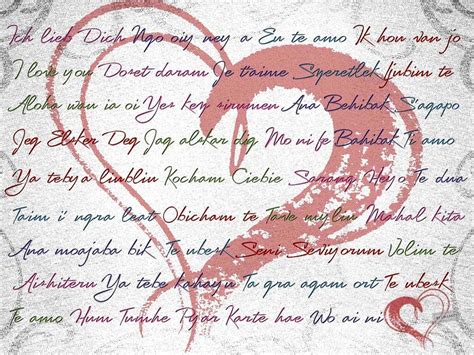 Ich lieb Dich Ngo oiy ney a Eu te amo Ik hou van jo
I love you Doset daram Je t'aime Szeretlek Ljubim te
Aloha wau ia oi Yes kez sirumem Ana Behibak Sagapo
Jeg Elsker Deg Jag alskar dig Mo ni fe Behibak Ti amo
Ya tebya liubliu Kocham Ciebie Sarang Heyo Te dua
Taim i' ngra leat Obicham te Tave myliu Mahal kita
Ana moajaba bik Te ubesk Seni Seviyorum Volim te
Aishiteru Ya tebe kahayu Ta gra agam ort Te ubesk
Te amo Hum Tumhe Pyar Karte hae Wo ai ni